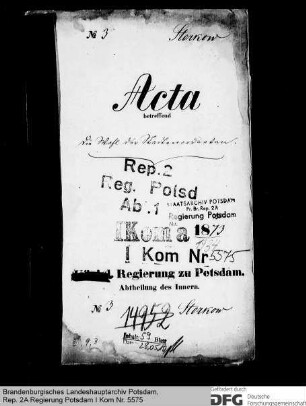 № 3 Storkow
Acta
betreffend
die Wahl der Stadtverordneten.
Rep. 2
Reg. Potsd
Ab. 1
STAATSARCHIV POTSDAM
Pr. Br. Rep. 2A
Regierung Potsdam
I Kom
I Kom Nr 5575
Regierung zu Potsdam.
Abtheilung des Innern.
№ 3 Storkow
14952
Brandenburgisches Landeshauptarchiv Potsdam,
Rep. 2A Regierung Potsdam I Kom Nr. 5575
Gefördert durch
DFG Deutsche
Forschungsgemeinschaft